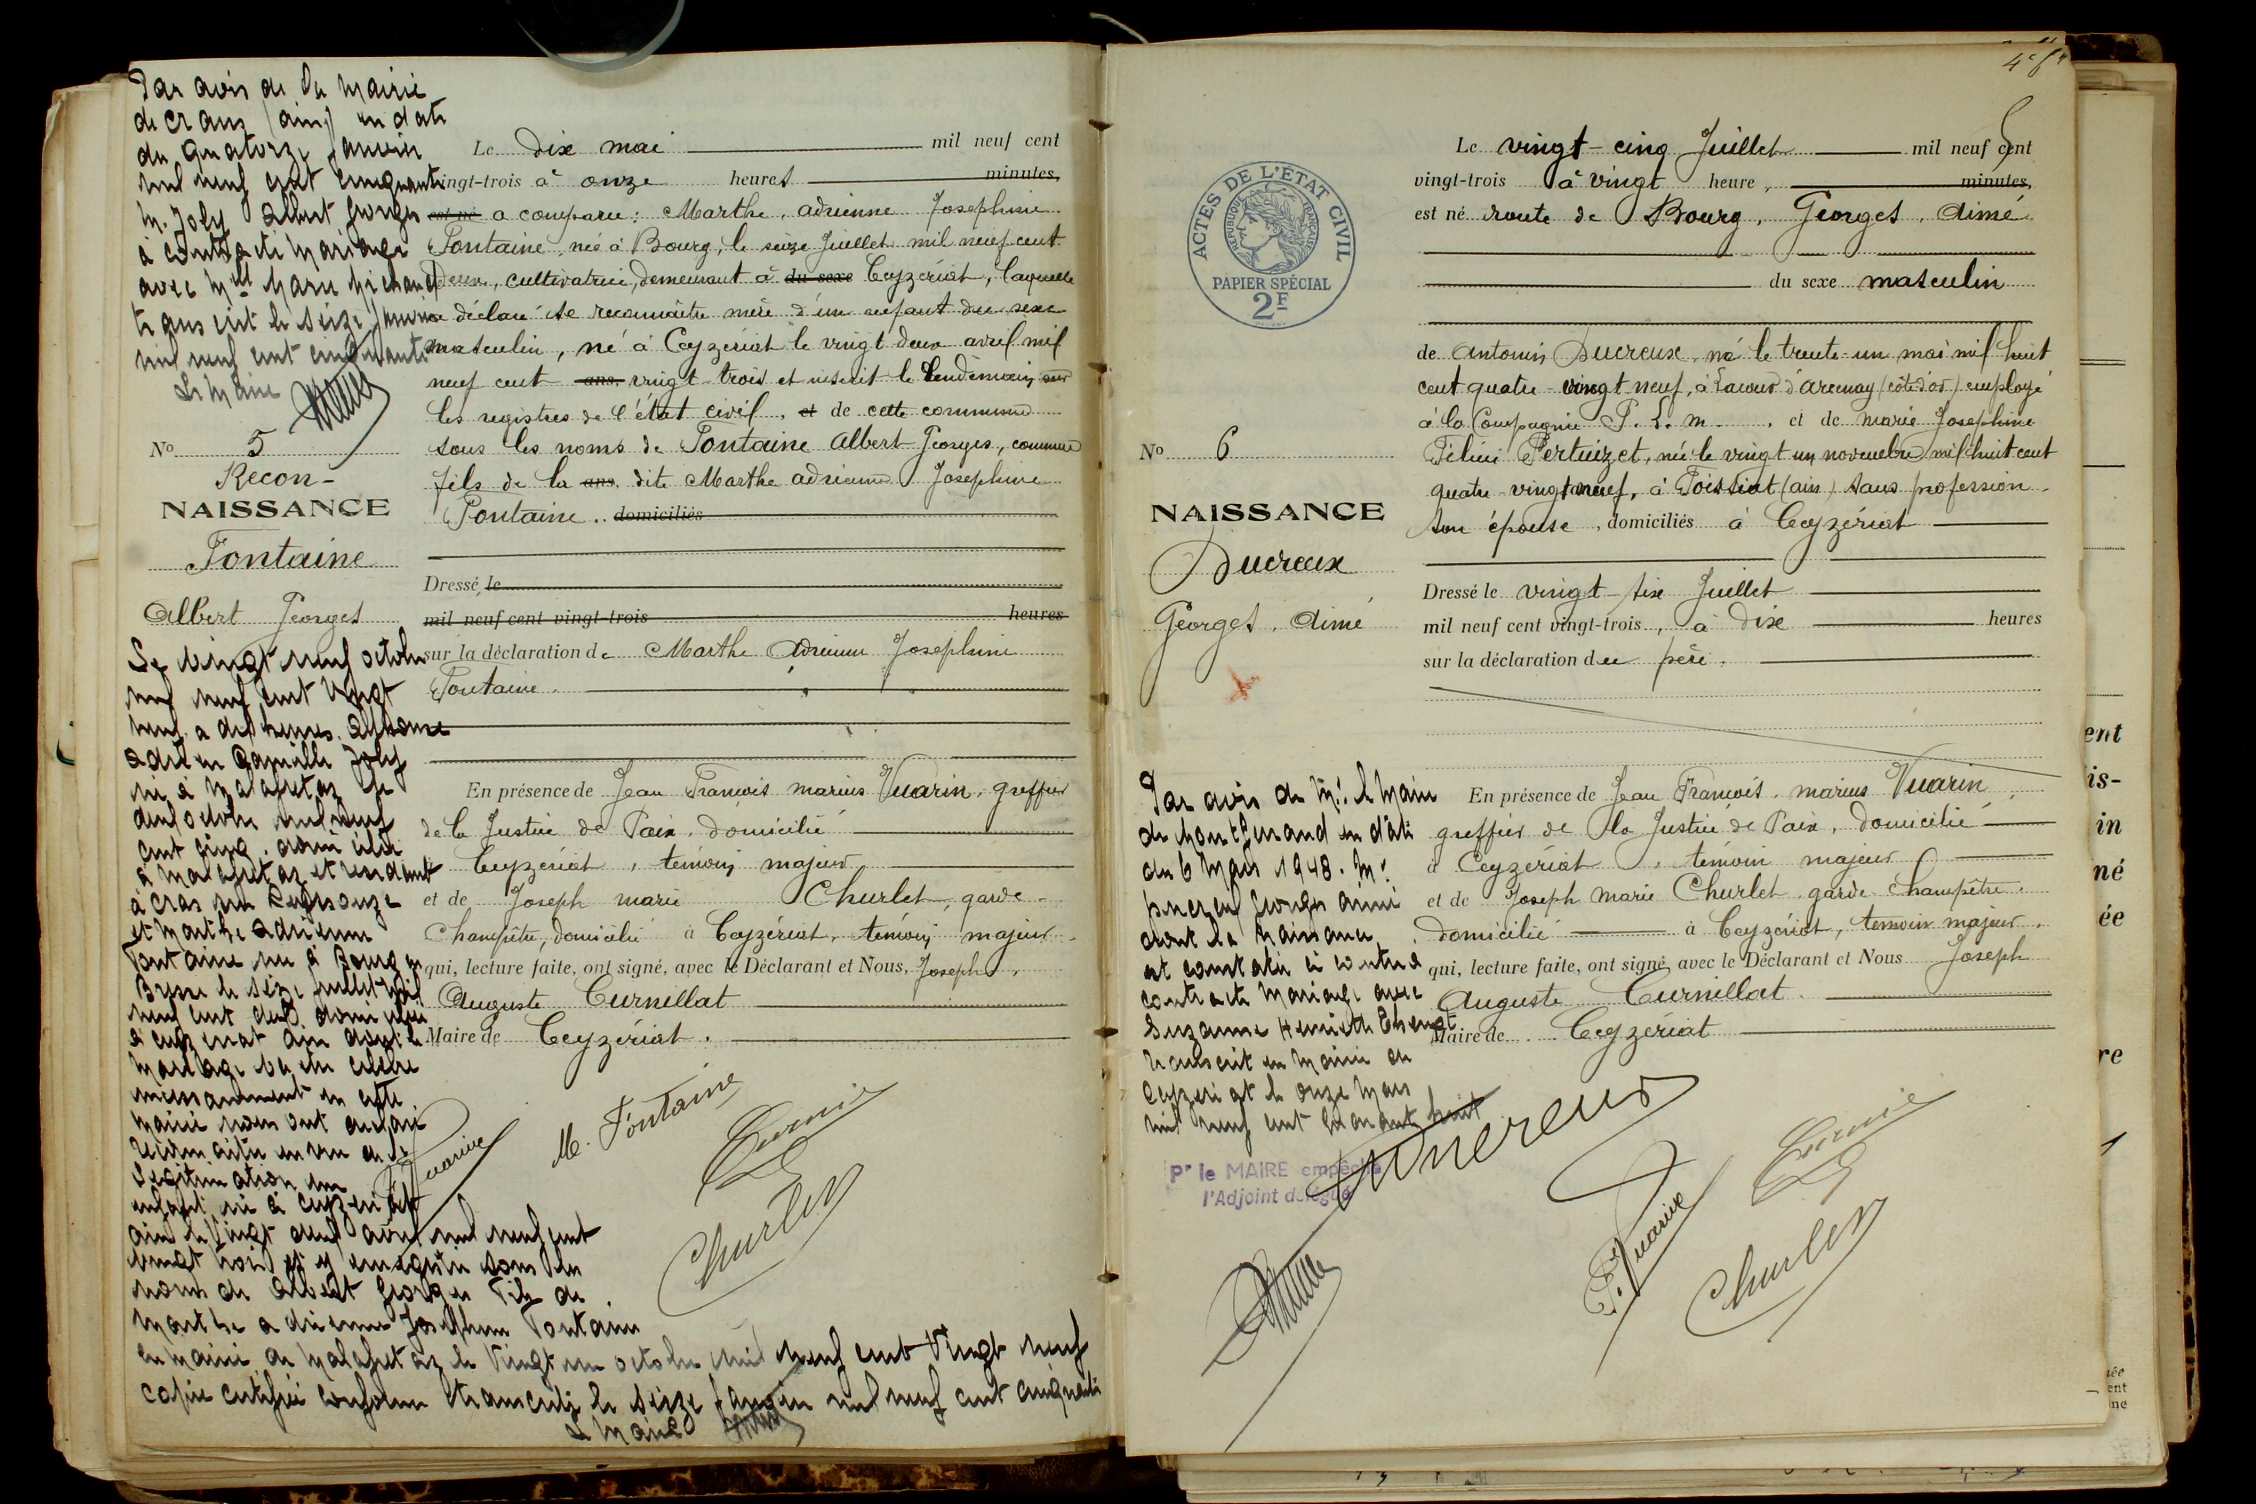 Par avis de la Mairie
de Crans (Ain) en date
du quatorze Janvier
mil neuf cent cinquante
M. Joly Albert Georges
à contracté mariage
avec Mlle Marie
le seize Janvier
mil neuf cent cinquante
Le Maire
No 5
Recon-
NAISSANCE
Fontaine
Albert Georges
Le vingt neuf octobre
mil neuf cent vingt
neuf a dix heures. Alphonse
Adrien Camille Joly
né à Malafretaz le
octobre mil neuf
cent cinq. domicilié
à Malafretaz et
à Cras sur Reyssouze
et Marthe Adrienne
Fontaine née à Bourg en
Bresse le seize Juillet mil
neuf cent deux domiciliée
à Ceyzériat Ain dont le
mariage va être célébré
incessamment en cette
mairie nous ont déclaré
reconnaitre en vue de la
légitimation un
enfant né à Ceyzériat
Ain le vingt deux avril mil neuf cent
vingt trois et y enregistré sous les
noms de Albert Georges fils de
Marthe Adrienne Joséphine Fontaine
En mairie de Malafretaz le vingt neuf octobre mil neuf cent vingt neuf
copie certifiée conforme transcrite le seize Janvier mil neuf cent cinquante
Le Maire
Le dix mai mil neuf cent
vingt-trois à onze heures minutes,
est né a comparu: Marthe, Adrienne Josephine
Fontaine, née à Bourg, le seize Juillet mil neuf cent
deux, cultivatrice, demeurant à du sexe Ceyzériat, laquelle
a déclaré se reconnaitre mère d'un enfant du sexe
masculin, né à Ceyzériat le vingt deux avril mil
neuf cent ans, vingt-trois et inscrit le lendemain sur
les registres de l'état civil, et de cette commune
sous les noms de Fontaine Albert Georges, comme
fils de la ans, dite Marthe Adrienne Josephine
Fontaine.. domiciliés
Dressé, le
mil neuf cent vingt-trois heures
sur la déclaration de Marthe Adrienne Josephine
Fontaine.
En présence de Jean François Marius Vuarin, greffier
de la Justice de Paix, domicilié
à Ceyzériat, témoin majeur
et de Joseph Marie Churlet, garde-
Champêtre, domicilié à Ceyzériat, témoin majeur.
qui, lecture faite, ont signé, avec le Déclarant et Nous, Joseph,
Auguste Curnillat
Maire de Ceyzériat.
F. Vuarin
M. Fontaine
Churlet
No 6
NAISSANCE
Ducreux
Georges, Aimé
ACTES DE L'ETAT CIVIL
REPUBLIQUE FRANÇAISE
PAPIER SPÉCIAL
2F
Le vingt-cinq Juillet mil neuf cent
vingt-trois à vingt heure, minutes,
est né route de Bourg, Georges, Aimé
du sexe masculin
de Antonin Ducreux, né le trente-un mai mil huit
cent quatre-vingt neuf, à Lacour d'Arcenay (côte d'or) employé
à la Compagnie P.L.M. et de Marie Josephine
Pertuizet, née le vingt un novembre mil huit cent
quatre-vingt neuf, à Foissiat (ain) sans profession
son épouse, domiciliés à Ceyzériat
Dressé le vingt-six Juillet
mil neuf cent vingt-trois, à dix heures
sur la déclaration du père.
En présence de Jean François, Marius Vuarin,
greffier de la Justice de Paix, domicilié
à Ceyzériat, témoin majeur
et de Joseph Marie Churlet garde champêtre,
domicilié à Ceyzériat, témoin majeur.
qui, lecture faite, ont signé avec le Déclarant et Nous Joseph
Auguste Curnillat.
Maire de Ceyzériat
Par avis de Mr. le Maire
de en date
du 6 Mars 1948. Mr.
Ducreux Georges Aimé
dont la naissance
est constatée ci contre à
contracté mariage avec
Suzanne Henriette
transcrit en mairie de
Ceyzériat le onze Mars
mil neuf cent quarante huit
Pr le MAIRE empêché
l'Adjoint délégué
Ducreux
F. Vuarin
Churlet
ent
is-
in
né
ée
re